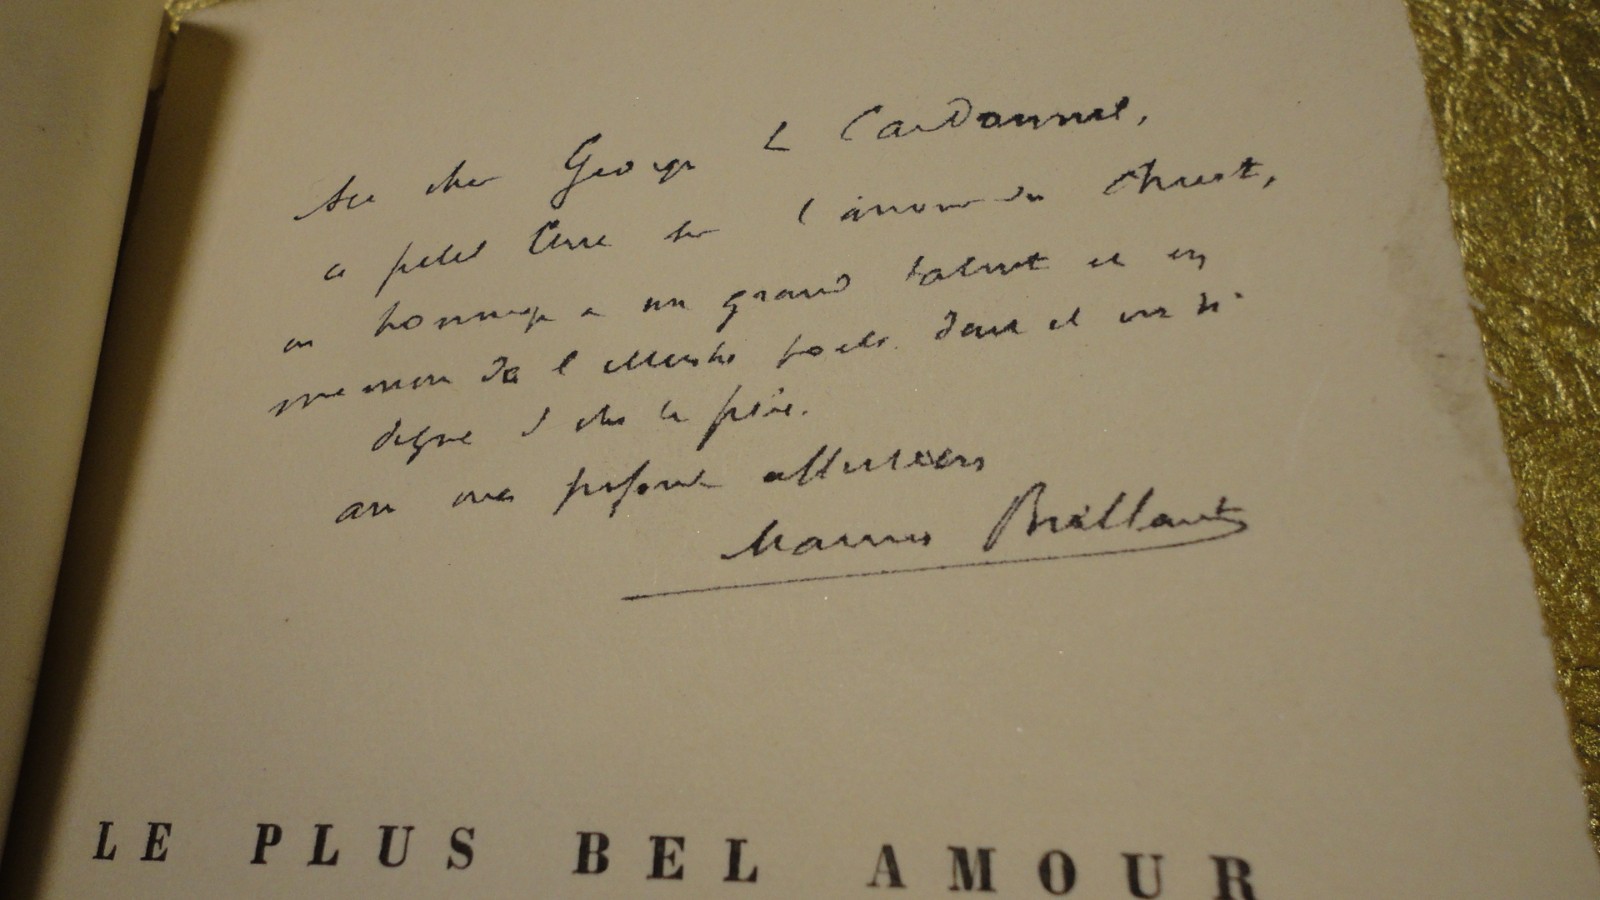 Au cher Georges Le Cardonnel,
ce petit livre sur l'amour du Christ,
en hommage à un grand talent et en
mémoire de l'illustre poète dont il est si
digne d'être le frère.
avec ma profonde affection
Maurice Brillant
LE PLUS BEL AMOUR